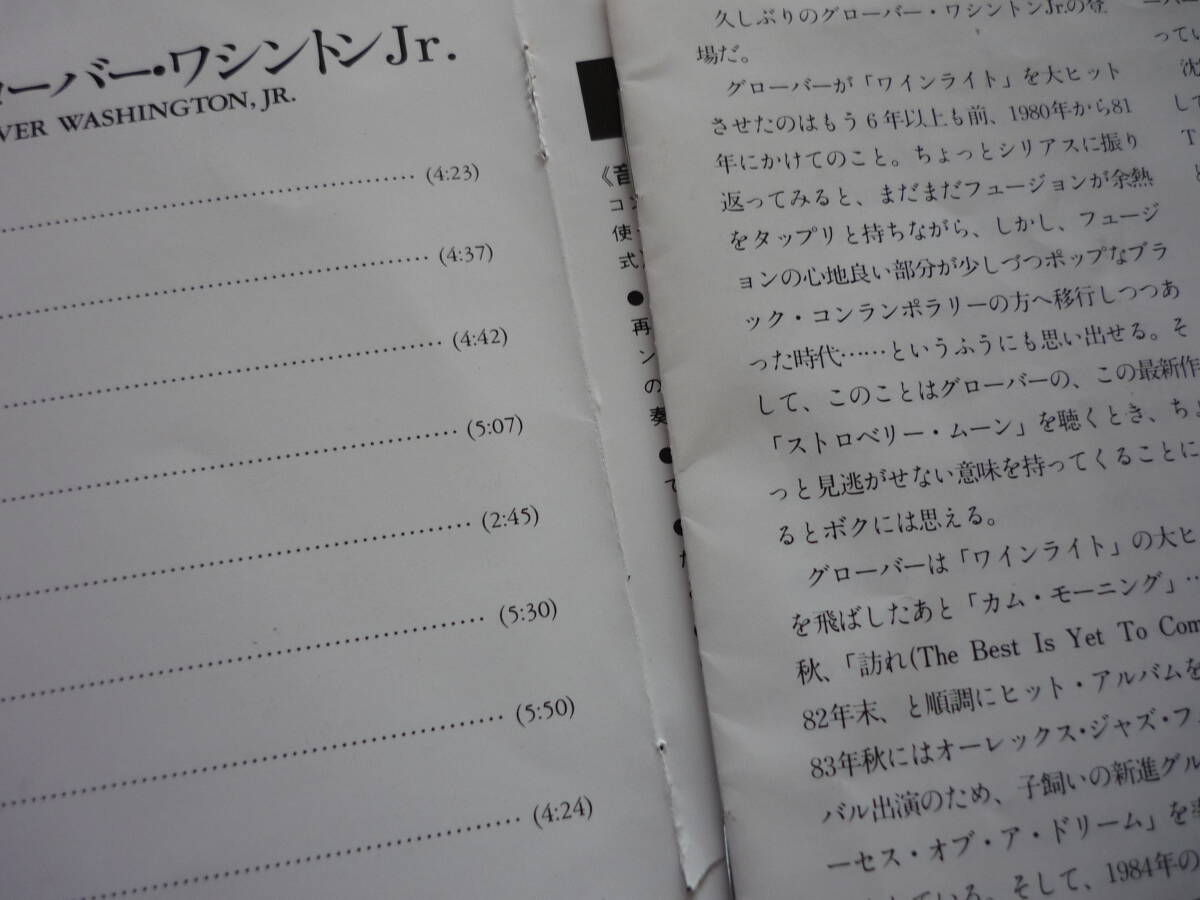 ローバー・ワシントンJr.
VER WASHINGTON, JR.
(4:23)
(4:37)
(4:42)
(5:07)
(2:45)
(5:30)
(5:50)
(4:24)
《音
使
式
●
再
ン
の
奏
●
て
●
久しぶりのグローバー・ワシントンJr.の登
場だ。
グローバーが「ワインライト」を大ヒット
させたのはもう6年以上も前、1980年から81
年にかけてのこと。ちょっとシリアスに振り
返ってみると、まだまだフュージョンが余熱
をタップリと持ちながら、しかし、フュージ
ョンの心地良い部分が少しづつポップなブラ
ック・コンランポラリーの方へ移行しつつあ
った時代……というふうにも思い出せる。そ
して、このことはグローバーの、この最新作
「ストロベリー・ムーン」を聴くとき、ちょ
っと見逃がせない意味を持ってくることに
るとボクには思える。
グローバーは「ワインライト」の大ヒ
を飛ばしたあと「カム・モーニング」…
秋、「訪れ(The Best Is Yet To Com
82年末、と順調にヒット・アルバムを
83年秋にはオーレックス・ジャズ・フ
バル出演のため、子飼いの新進グル
ーセス・オブ・ア・ドリーム」を
ている。そして、1984年の
ーバー
ってい
沈
して
T
と